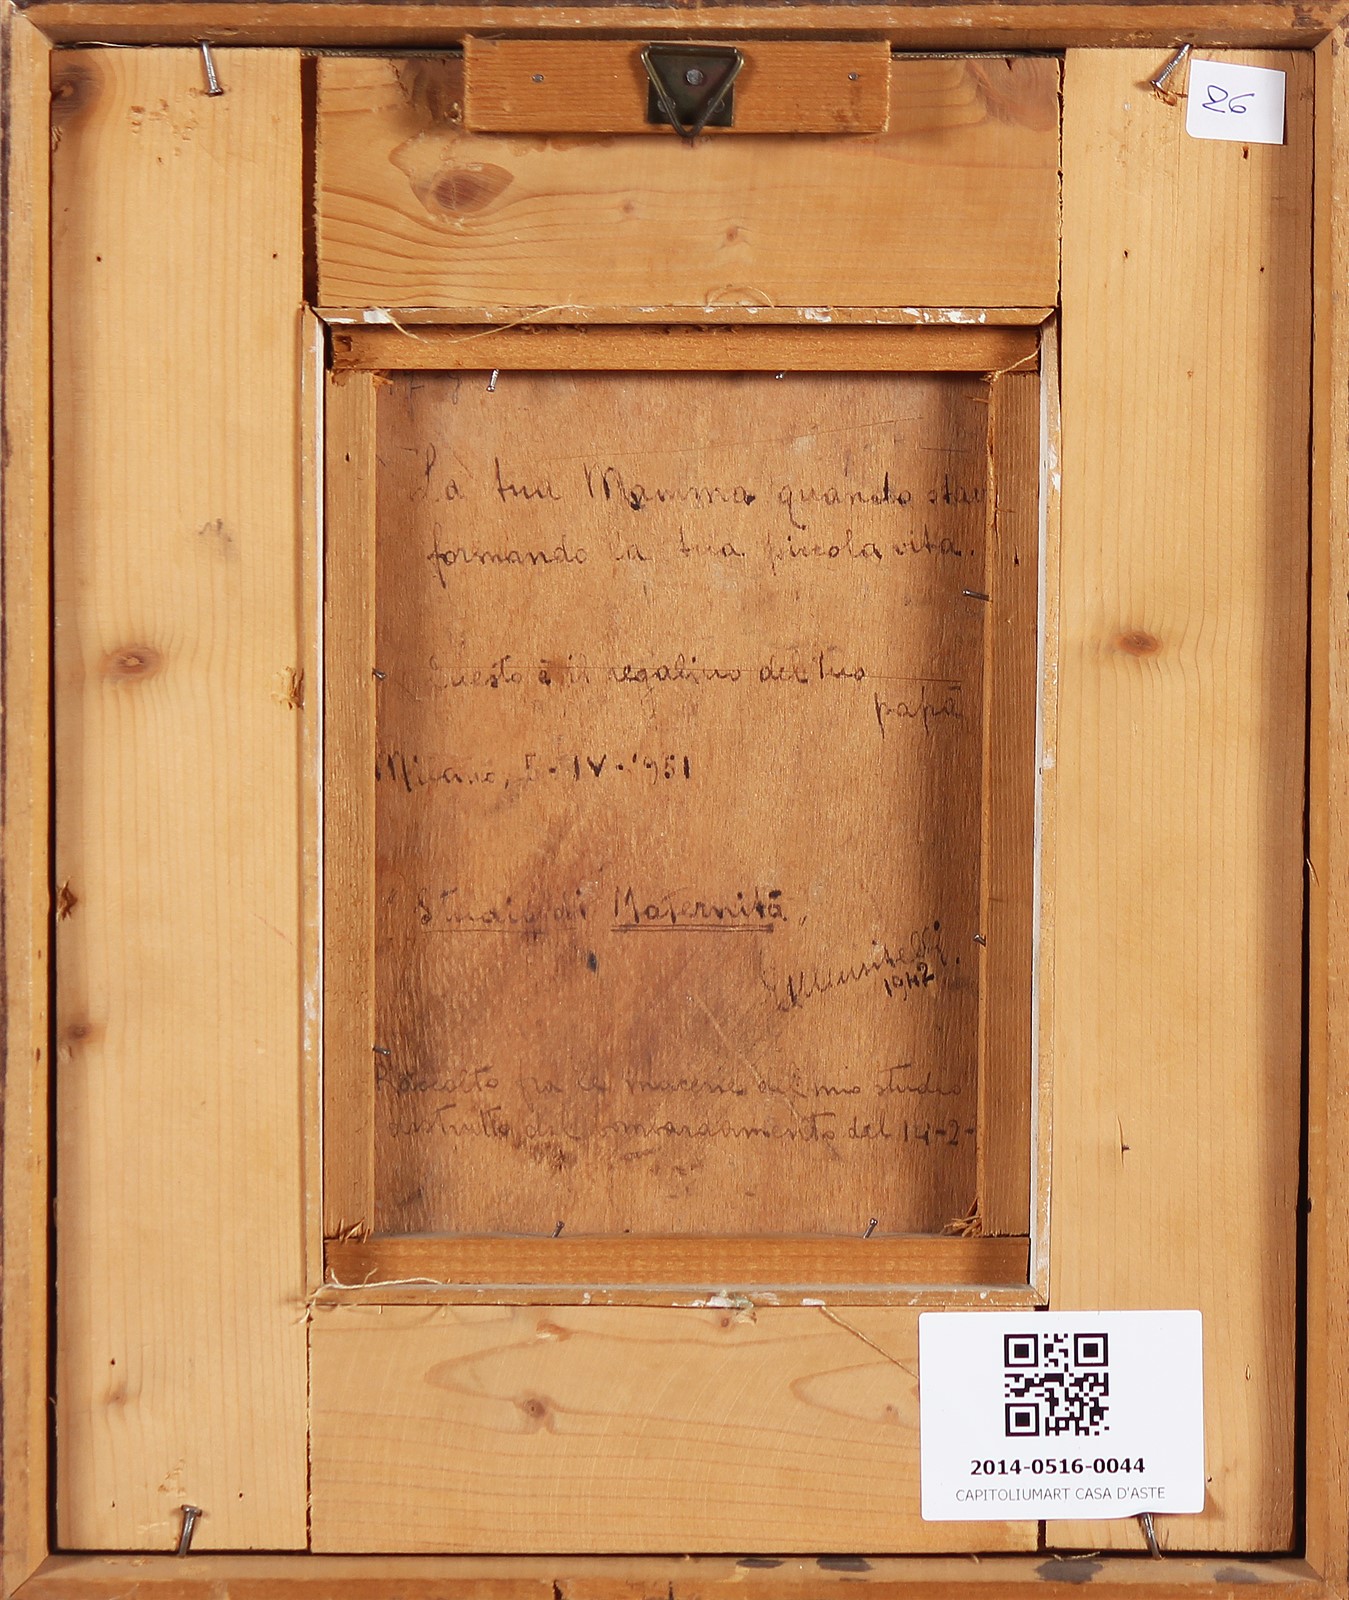 26
La tua Mamma quando stav
formando la tua piccola vita.
Questo è il regalino del tuo
papà
Milano, 5-IV-1951
Studio di Maternità
1942
Raccolto fra le macerie del mio studio
distrutto dal bombardamento del 14-2-
2014-0516-0044
CAPITOLIUMART CASA D'ASTE